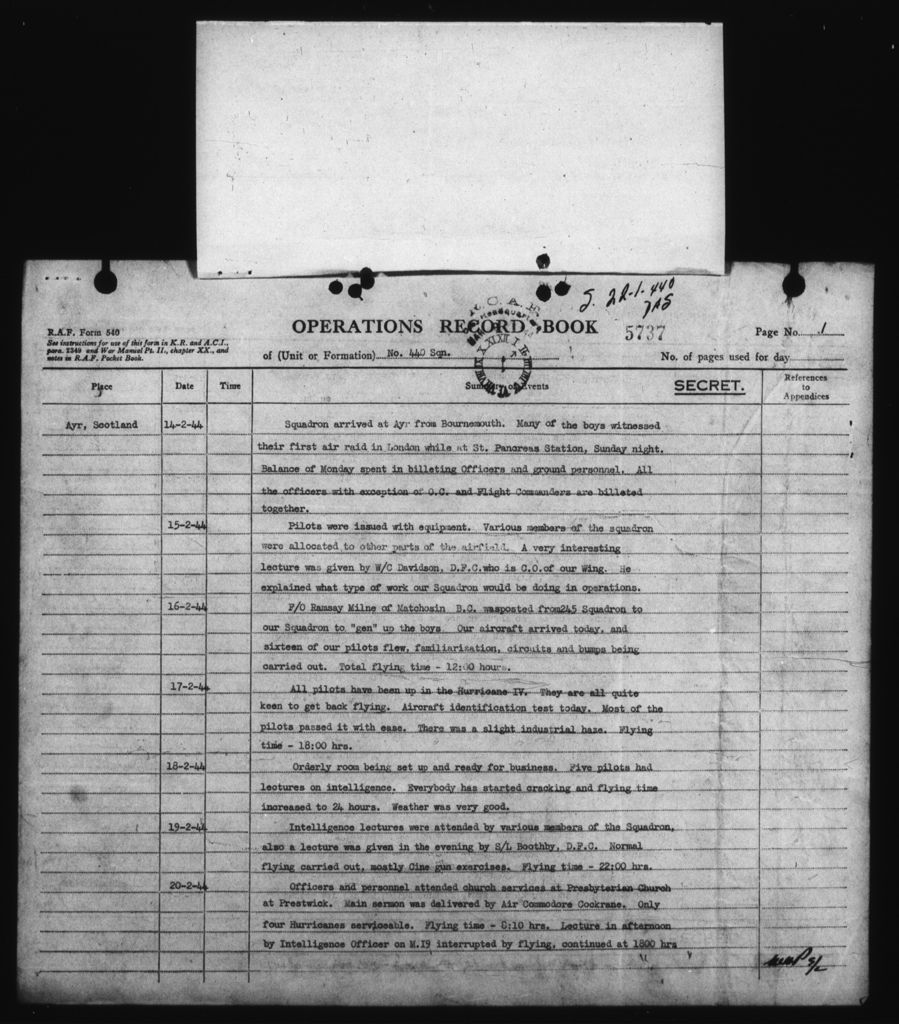 S. 22-1-440
R.C.A.F.
Headquarters
R.A.F. Form 540
See instructions for use of this form in K.R. and A.C.I.,
para. 2349 and War Manual Pt. II., chapter XX., and
notes in R.A.F. Pocket Book.
OPERATIONS RECORD BOOK
5737
Page No. 1
of (Unit or Formation) No. 440 Sqn.
No. of pages used for day
Place Date Time Summary of Events SECRET. References to Appendices
Ayr, Scotland 14-2-44 Squadron arrived at Ayr from Bournemouth. Many of the boys witnessed
their first air raid in London while at St. Pancreas Station, Sunday night.
Balance of Monday spent in billeting Officers and ground personnel. All
the officers with exception of O.C. and Flight Commanders are billeted
together.
15-2-44 Pilots were issued with equipment. Various members of the squadron
were allocated to other parts of the airfield. A very interesting
lecture was given by W/C Davidson, D.F.C.who is C.O.of our Wing. He
explained what type of work our Squadron would be doing in operations.
16-2-44 F/O Ramsay Milne of Matchosin B.C. wasposted from245 Squadron to
our Squadron to "gen" up the boys. Our aircraft arrived today, and
sixteen of our pilots flew, familiarization, circuits and bumps being
carried out. Total flying time - 12:00 hours.
17-2-44 All pilots have been up in the Hurricane IV. They are all quite
keen to get back flying. Aircraft identification test today. Most of the
pilots passed it with ease. There was a slight industrial haze. Flying
time - 18:00 hrs.
18-2-44 Orderly room being set up and ready for business. Five pilots had
lectures on intelligence. Everybody has started cracking and flying time
increased to 24 hours. Weather was very good.
19-2-44 Intelligence lectures were attended by various members of the Squadron,
also a lecture was given in the evening by S/L Boothby, D.F.C. Normal
flying carried out, mostly Cine gun exercises. Flying time - 22:00 hrs.
20-2-44 Officers and personnel attended church services at Presbyterian Church
at Prestwick. Main sermon was delivered by Air Commodore Cockrane. Only
four Hurricanes serviceable. Flying time - 8:10 hrs. Lecture in afternoon
by Intelligence Officer on M.I9 interrupted by flying, continued at 1800 hrs